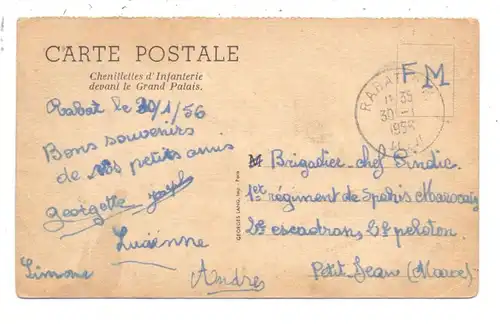 CARTE POSTALE
Chenillettes d'Infanterie
devant le Grand Palais.
Rabat le 30/1/56
Bons souvenirs
de vos petits amis
georgette joseph
Lucienne
Simone
Andres
GEORGES LANG, Imp. Paris
RABAT
11 35
30 - 1
1956
F M
M Brigadier-chef Sindic.
1er régiment de Spahis Marocains
2e escadrons, 2e peloton.
Petit Jean (Maroc)